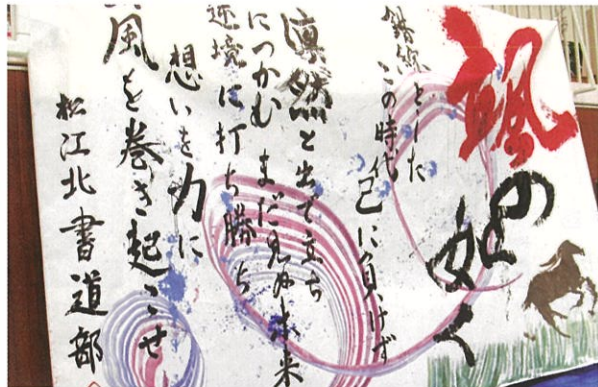 颯の如く
錯綜とした
この時代 己に負けず
凛然と出で立ち
につかむ まだ見ぬ未来
逆境に打ち勝ち
想いを力に
風を巻き起こせ
松江北書道部